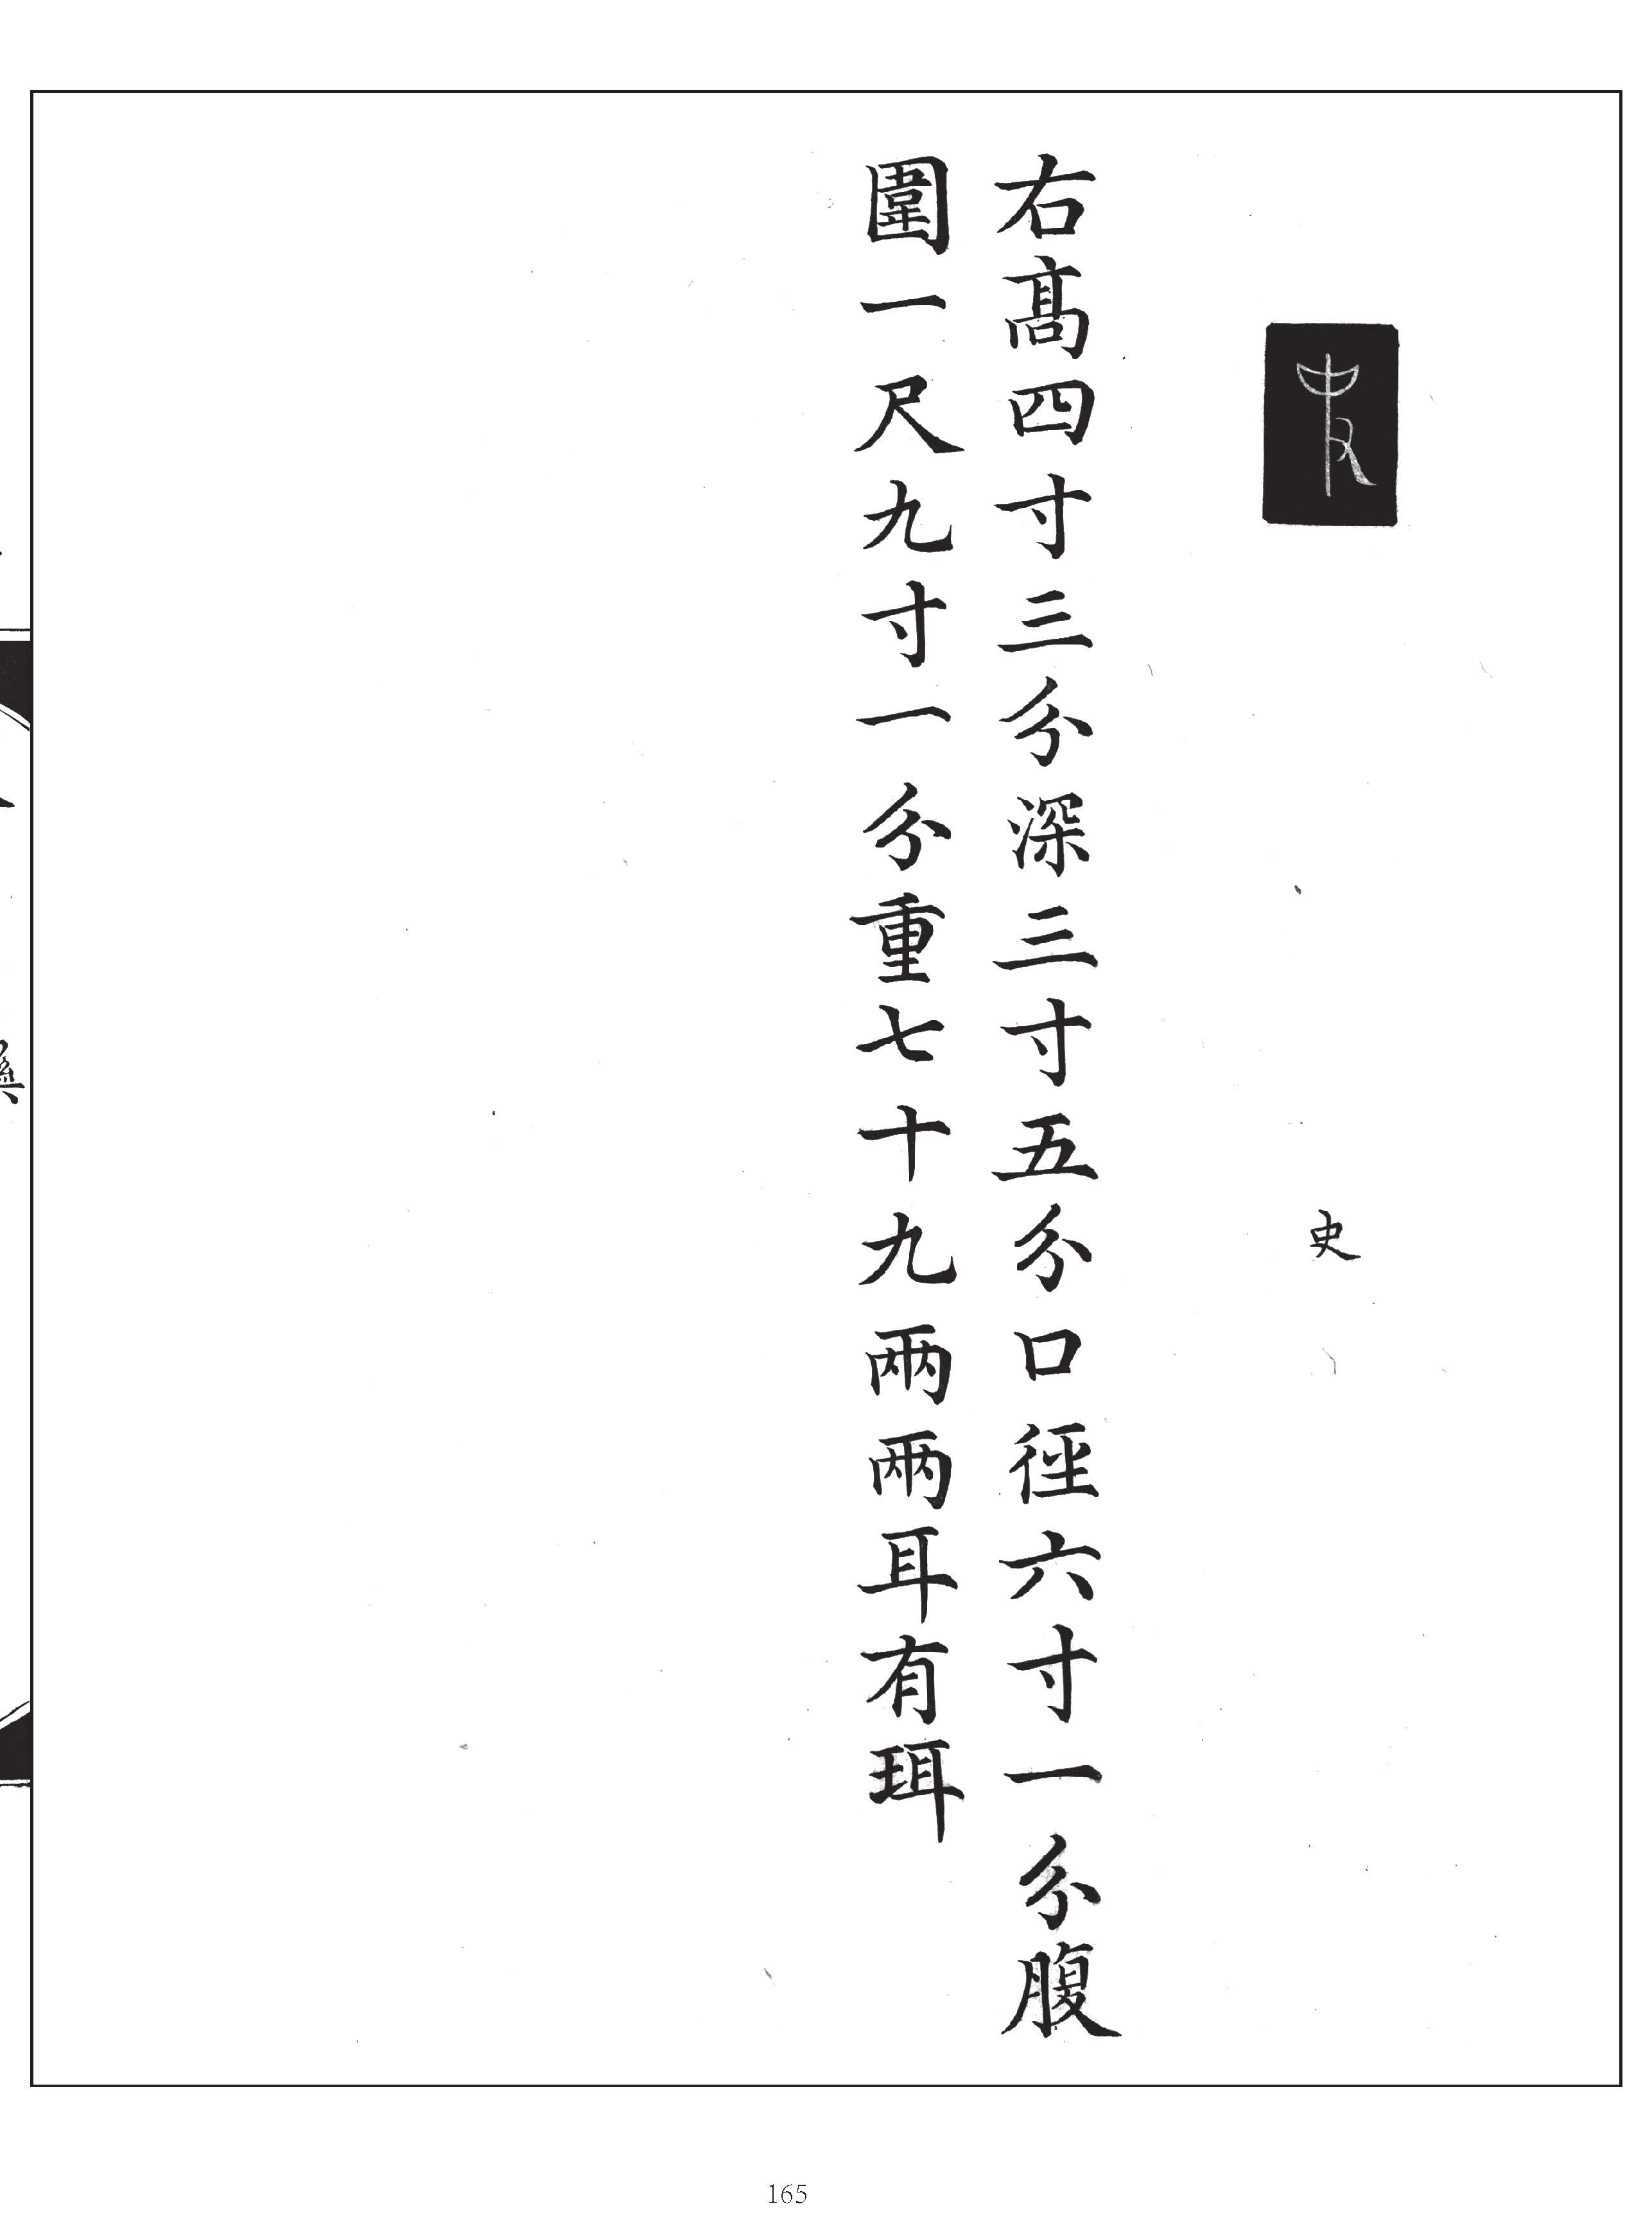 史
右髙四寸三分深三寸五分口徑六寸一分腹
圍一尺九寸一分重七十九兩兩耳有珥
165